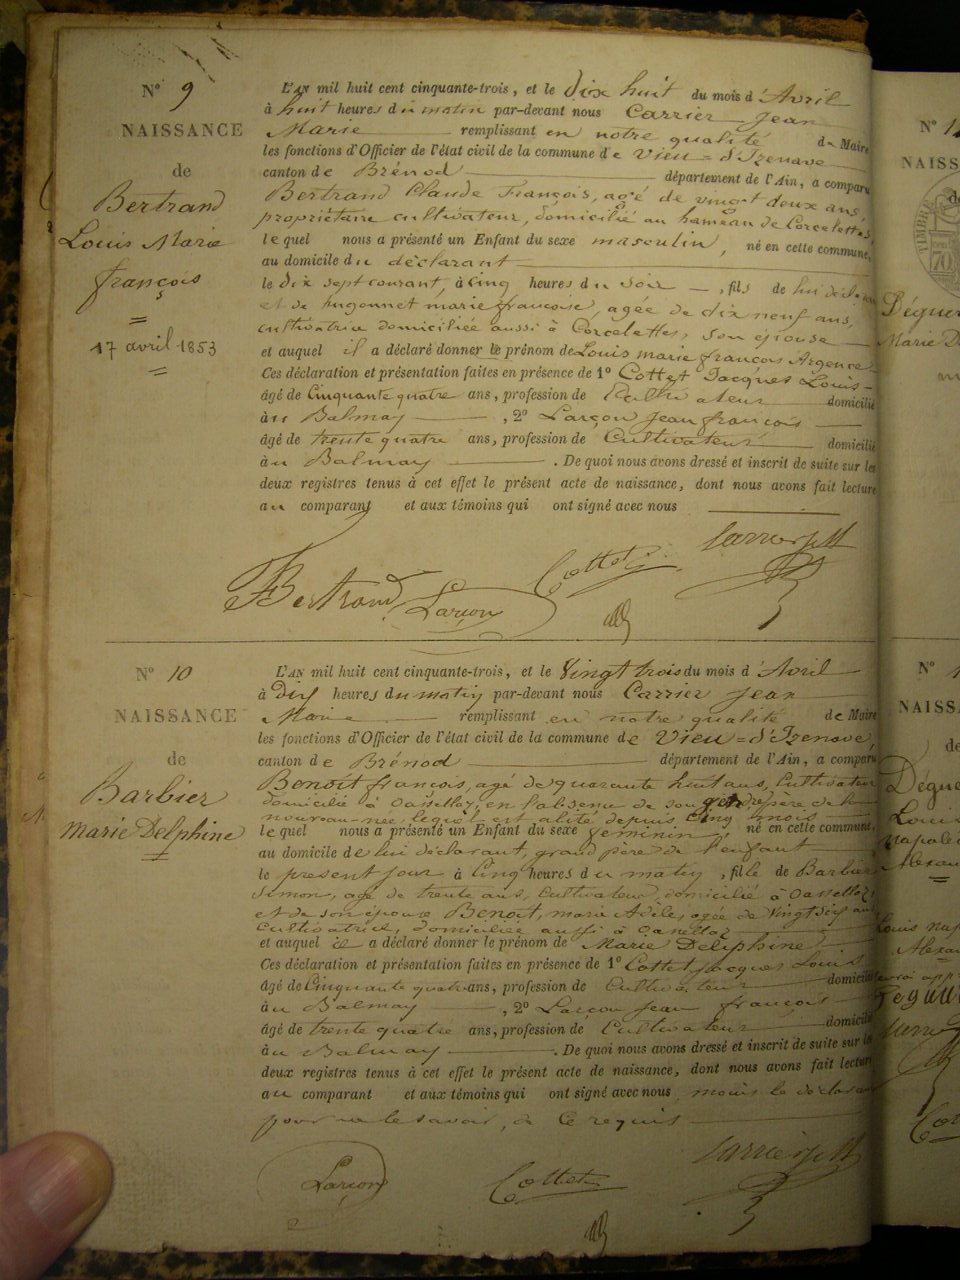 N° 9
NAISSANCE
de
Bertrand
Louis Marie
françois
17 avril 1853
L'AN mil huit cent cinquante-trois, et le dix huit du mois d'Avril
à huit heures du matin par-devant nous Carrier Jean
Marie remplissant en notre qualité de Maire
les fonctions d'Officier de l'état civil de la commune de Vieu=d'Izenave
canton de Brénod département de l'Ain, a comparu
Bertrand Claude François, agé de vingt deux ans,
propriétaire cultivateur, domicilié au hameau de Corcelettes,
lequel nous a présenté un Enfant du sexe masculin, né en cette commune,
au domicile du déclarant
le dix sept courant, à cinq heures du soir, fils de lui déclarant
et de hugonnet marie françoise, agée de dix neuf ans,
cultivatrice domiciliée aussi à Corcelettes, son épouse
et auquel il a déclaré donner le prénom de Louis marie françois Argence
Ces déclaration et présentation faites en présence de 1° Cottet Jacques Louis
âgé de Cinquante quatre ans, profession de Cultivateur domicilié
à u Balmay, 2° Larçon Jean françois
âgé de trente quatre ans, profession de Cultivateur domicilié
à u Balmay. De quoi nous avons dressé et inscrit de suite sur les
deux registres tenus à cet effet le présent acte de naissance, dont nous avons fait lecture
au comparant et aux témoins qui ont signé avec nous
Carrier J M
Bertrand Larçon Cottet
N° 10
NAISSANCE
de
Barbier
Marie Delphine
L'AN mil huit cent cinquante-trois, et le Vingt trois du mois d'Avril
à dix heures du matin par-devant nous Carrier Jean
Marie remplissant en notre qualité de Maire
les fonctions d'Officier de l'état civil de la commune de Vieu=d'Izenave,
canton de Brénod département de l'Ain, a comparu
Benoît françois, agé de quarante huit ans, Cultivateur
domicilié à Oisellaz, en l'absence de son gendre père de la
nouveau-née, lequel est alité depuis cinq mois
lequel nous a présenté un Enfant du sexe féminin, né en cette commune,
au domicile de lui déclarant, grand père de l'enfant
le présent jour à Cinq heures du matin, fille de Barbier
Simon, agé de trente ans, Cultivateur, domicilié à Oisellaz,
et de son épouse Benoît, marie Adèle, agée de Vingt dix ans
Cultivatrice, domiciliée aussi à Oisellaz
et auquel il a déclaré donner le prénom de Marie Delphine
Ces déclaration et présentation faites en présence de 1° Cottet Jacques Louis
âgé de Cinquante quatre ans, profession de Cultivateur domicilié
à u Balmay, 2° Larçon Jean françois
âgé de trente quatre ans, profession de Cultivateur domicilié
à u Balmay. De quoi nous avons dressé et inscrit de suite sur les
deux registres tenus à cet effet le présent acte de naissance, dont nous avons fait lecture
au comparant et aux témoins qui ont signé avec nous moins le déclarant
pour ne le savoir, de ce requis
Carrier J M
Larçon Cottet